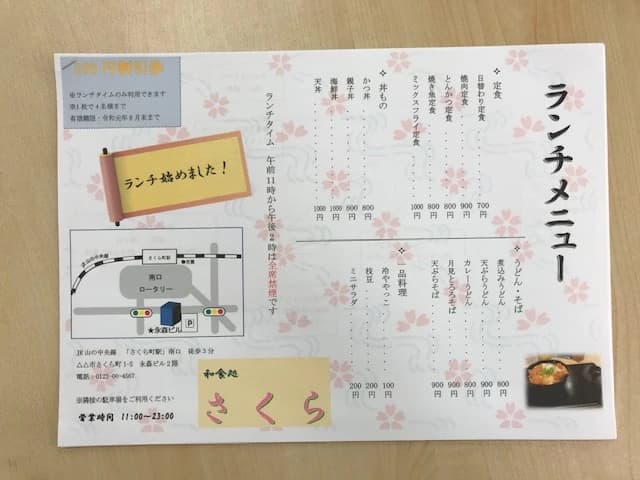 ランチメニュー
✧ 定食
日替わり定食・・・・・・700円
焼肉定食・・・・・・900円
とんかつ定食・・・・・・800円
焼き魚定食・・・・・・800円
ミックスフライ定食・・・・・・1000円
✧ 丼もの
かつ丼・・・・・・800円
親子丼・・・・・・800円
海鮮丼・・・・・・1000円
天丼・・・・・・1000円
✧ うどん・そば
煮込みうどん・・・・・・800円
天ぷらうどん・・・・・・900円
カレーうどん・・・・・・800円
月見とろろそば・・・・・・900円
天ぷらそば・・・・・・900円
✧ 一品料理
冷ややっこ・・・・・・100円
枝豆・・・・・・200円
ミニサラダ・・・・・・200円
ランチタイム 午前11時から午後2時は全席禁煙です
円割引券
※ランチタイムのみ利用できます
※1枚で4名様まで
有効期限・令和元年8月末まで
ランチ始めました!
JR山の中央線
さくら町駅
南口
ロータリー
P
★永森ビル
JR山の中央線 「さくら町駅」南口 徒歩3分
△△市さくら町1-5 永森ビル2階
電話:0123-00-4567
※隣接の駐車場をご利用ください
営業時間 11:00~23:00
和食処
さくら